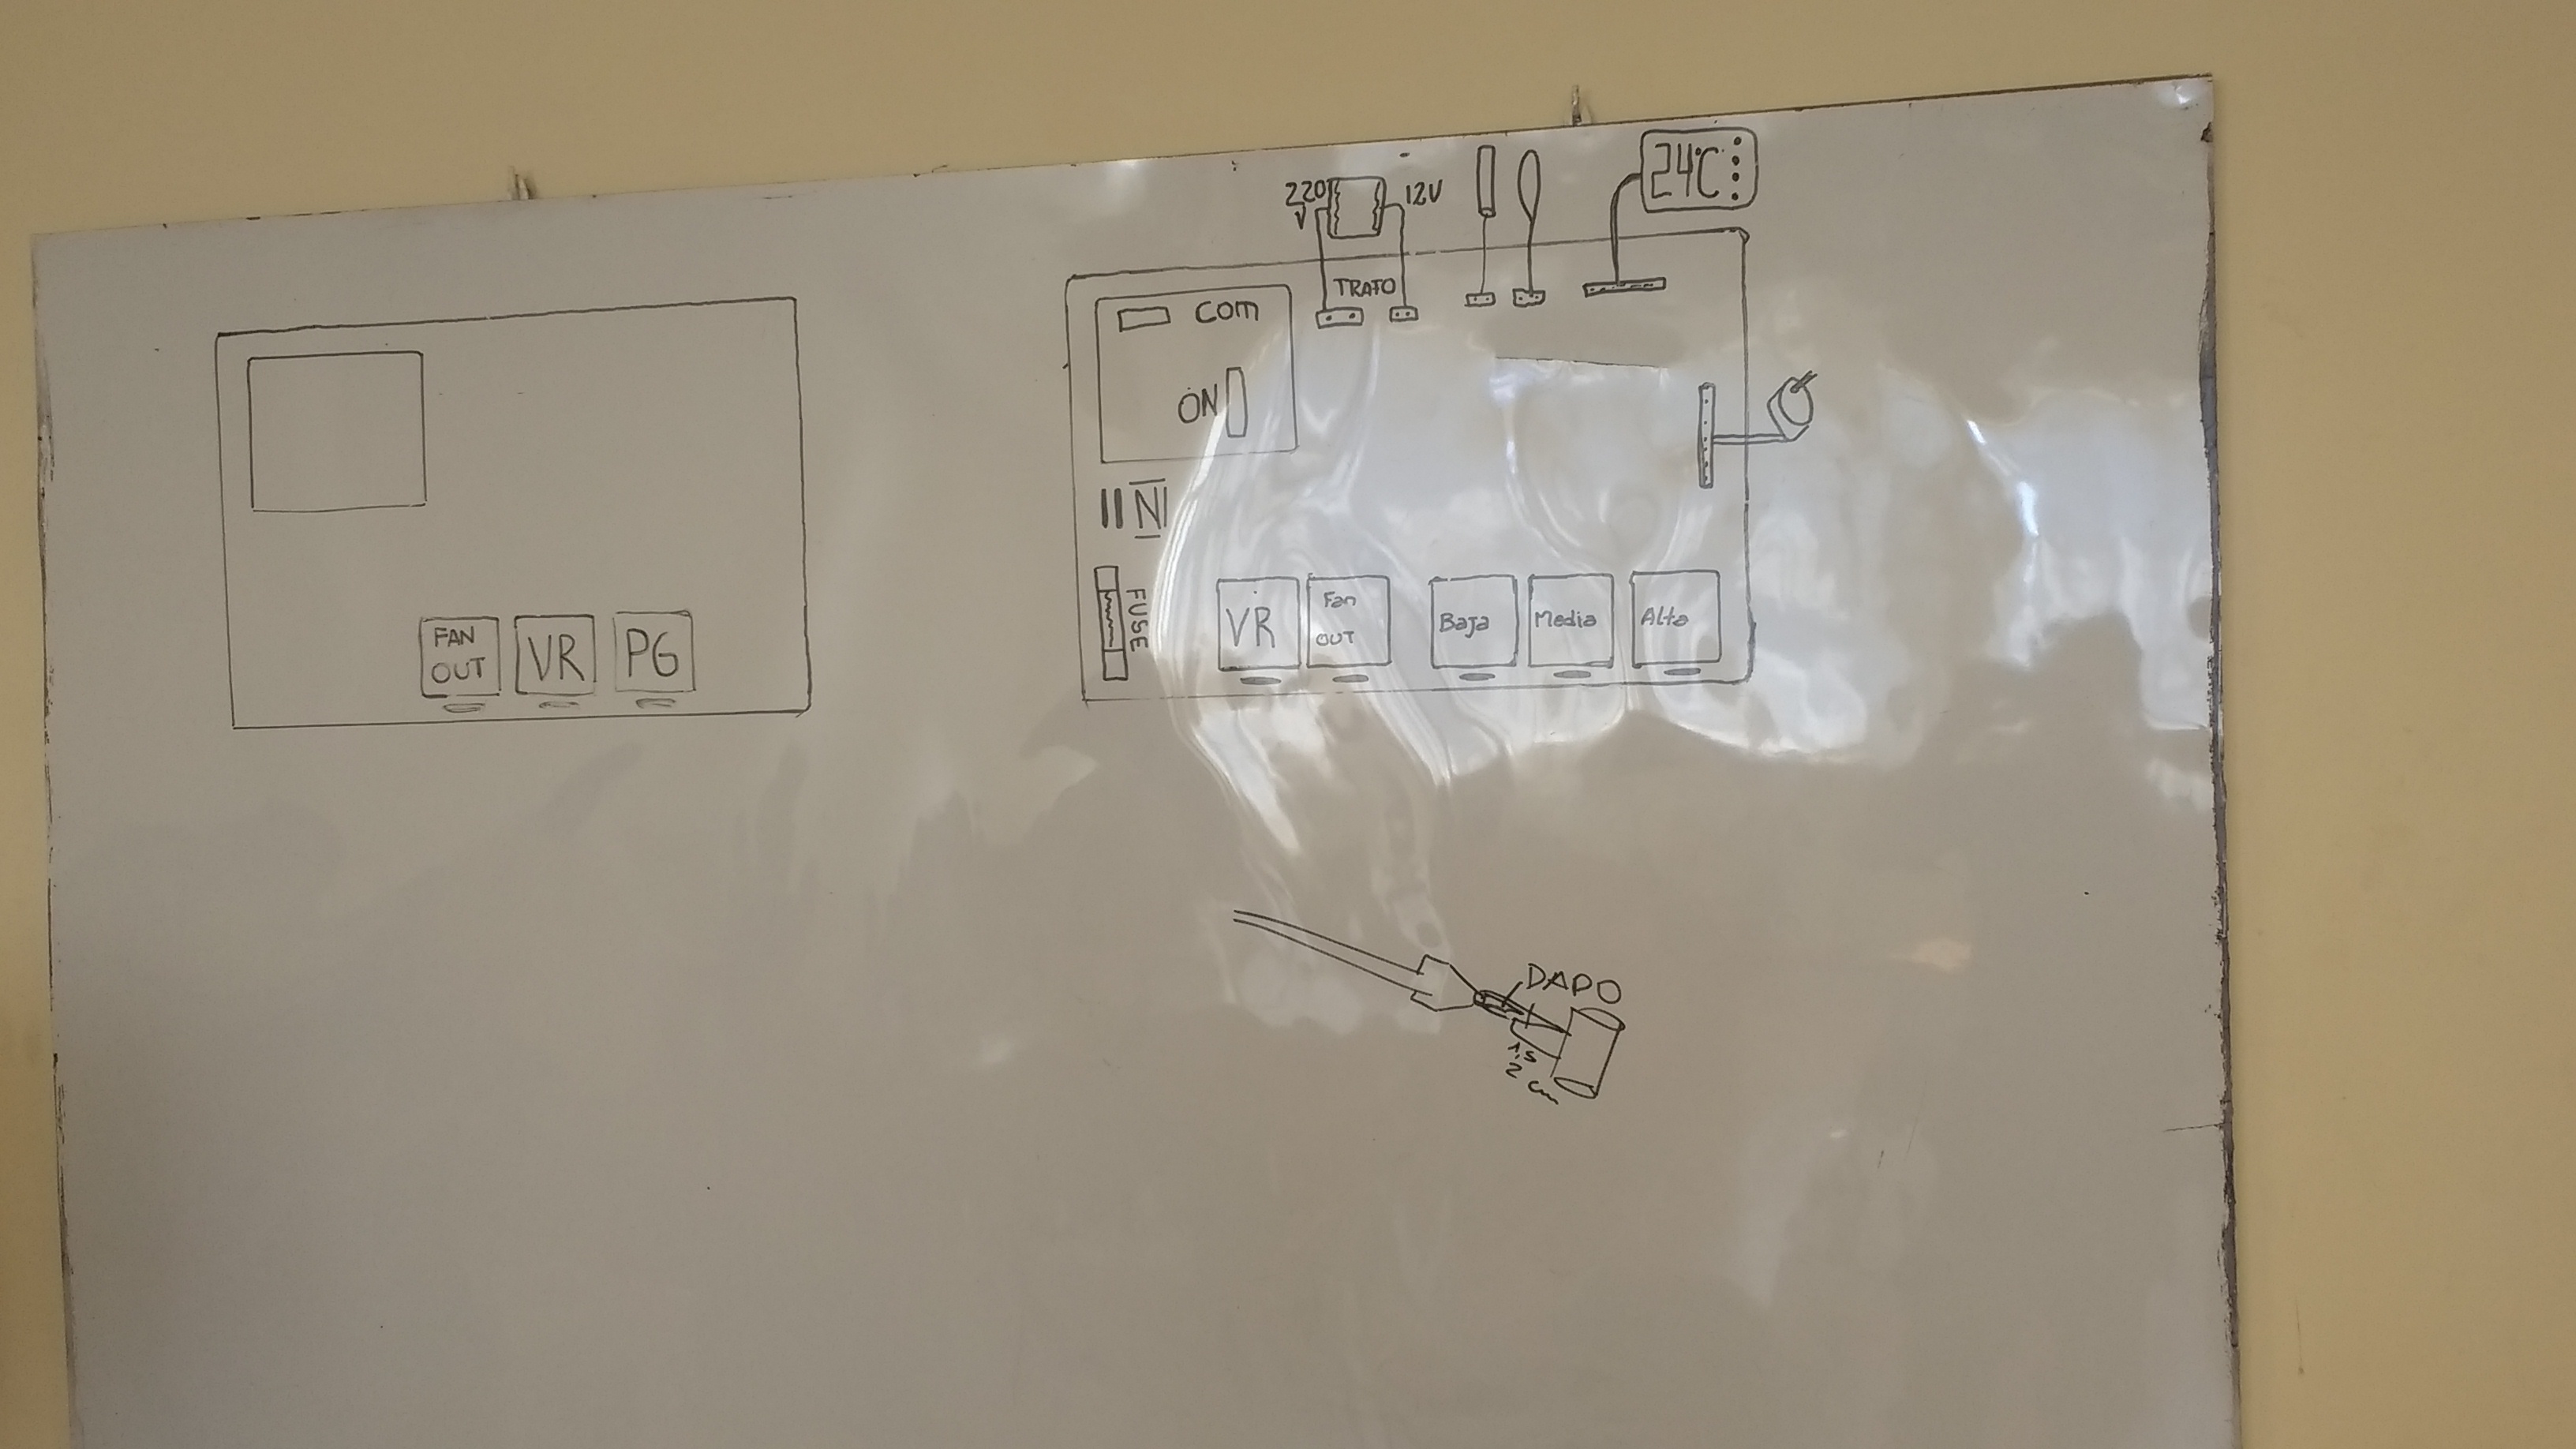 FAN
OUT
VR
PG
220
V
12V
24°C
TRAFO
COM
ON
N
FUSE
VR
Fan
OUT
Baja
Media
Alta
DADO
1,5
2 cm